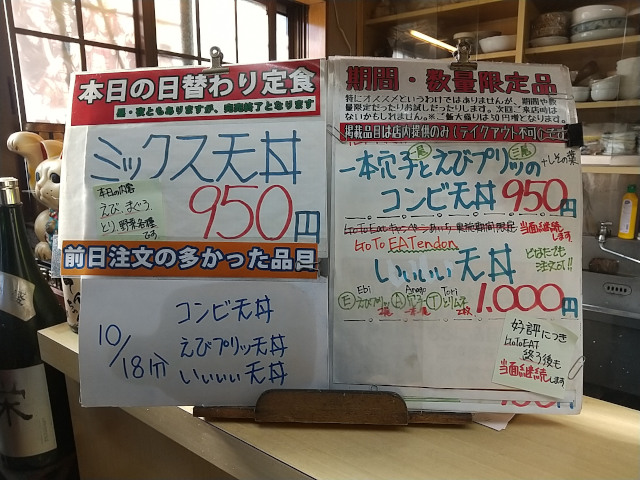 本日の日替わり定食
昼・夜ともありますが、完売終了となります
ミックス天丼
950円
えび、まぐろ、
とり、野菜各種
です
前日注文の多かった品目
10/18分
コンビ天丼
えびプリッ天丼
いいいい天丼
期間・数量限定品
特にオススメというわけではありませんが、期間や数
量限定だったりお試しだったりします。次回ご来店時は
ないかもしれません。※ご飯大盛りは50円増となります。
掲載品目は店内提供のみ(テイクアウト不可)です
一本穴子とえびプリッの
+しその葉
コンビ天丼 950円
当面継続します
GoTo EATendon
いいいい天丼
どなたでも
注文可!!
Ebi Anago Tori
E えびプリッ 2尾 A 穴子 一本 T とりムネ 2枚
1,000円
好評につき
GoToEAT
終了後も
当面継続します
栄